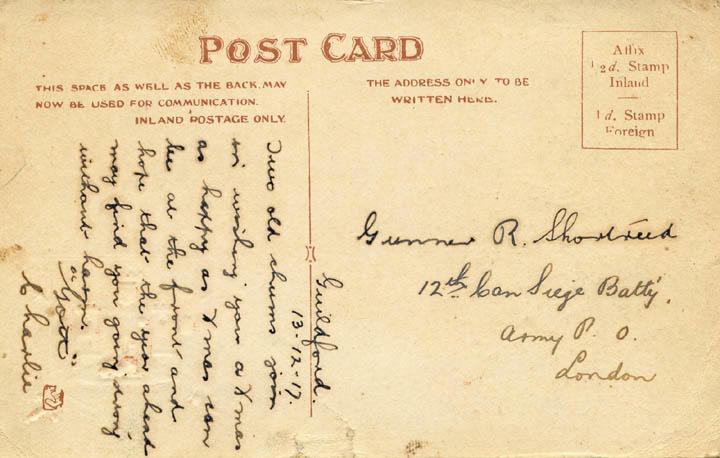 POST CARD
THIS SPACE AS WELL AS THE BACK, MAY
NOW BE USED FOR COMMUNICATION.
INLAND POSTAGE ONLY.
THE ADDRESS ONLY TO BE
WRITTEN HERE.
Affix
½d. Stamp
Inland
1d. Stamp
Foreign
Guildford.
13-12-17.
Two old chums join
in wishing you a Xmas
as happy as Xmas can
be at the front and
hope that the year ahead
may find you going strong
without harm.
"Gott"
Charlie
Gunner R. Shortreed
12th Can Siege Batty.
Army P. O.
London